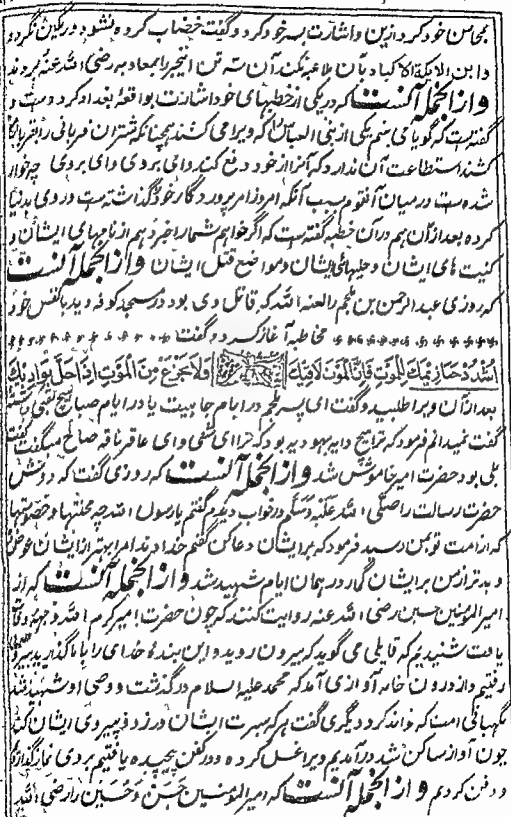 محاسن خود کرد ازین و اشارت بسر خود کرد و گفت خضاب کرده نشود و ریکن نکردو
و ابن الایکة الاکباد بآن بلاعبه نکرد آن سه تن آنچیز را بمعاویه رضی الله عنه بردند
و از انجمله آنست که در یکی از خطبهای خود اشارت بواقعهٔ بغداد کرده است و
گفته است که گویا می بینم یکی از بنی العباس را که ویرا می کشند همچنانکه شتران قربانی را بقربانگاه
کشند استطاعت آن ندارد که آنرا از خود دفع کند وای بروی وای بروی چه خوار
شده است در میان آنقوم بسبب آنکه امروز امر پروردگار خود گذاشته است و روی بدنیا
کرده بعد از آن هم در آن خطبه گفته است که اگر خواهم شما را خبر دهم از نامهای ایشان و
کنیت های ایشان و حلیهای ایشان و مواضع قتل ایشان و از انجمله آنست
که روزی عبد الرحمن بن ملجم را لعنه الله که قاتل وی بود در مسجد کوفه دید با نفس خود
مخاطبه آغاز کرد و گفت
اُشْدُدْ حَیَازِیْمَکَ لِلْمَوْتِ فَاِنَّ الْمَوْتَ لَاقِیْکَ وَلَا تَجْزَعْ مِنَ الْمَوْتِ اِذَا حَلَّ بِوَادِیْکَ
بعد از آن ویرا طلبید و گفت ای پسر ملجم در ایام جاهلیت یا در ایام صبا هیچ لقبی داشتی
گفت نمیدانم فرمود که ترا هیچ دایه یهودیه بود که ترا ای شقی و ای عاقر ناقه صالح میگفت گفت
بلی بود حضرت امیر خاموش شد و از انجمله آنست که روزی گفت که دوش
حضرت رسالت را صلی الله علیه وسلم در خواب دیدم گفتم یا رسول الله چه محنتها و خصومتها
که از امت تو بمن رسید فرمود که بر ایشان دعا کن گفتم خداوندا مرا بهتر از ایشان عوض
و بدتر از من بر ایشان گمار در همان ایام شهید شد و از انجمله آنست که از
امیر المؤمنین حسین رضی الله عنه روایت کنند که چون حضرت امیر کرم الله وجهه وفات
یافت شنیدیم که قایلی می گوید که بیرون روید و این بندهٔ خدای را با ما گذارید بیرون
رفتیم و از درون خانه آوازی آمد که محمد علیه السلام درگذشت و وصی او شهید شد
نگهبانی امت که تواند کرد دیگری گفت هر که سیرت ایشان ورزد و پیروی ایشان کند
چون آواز ساکن شد در آمدیم ویرا غسل کرده و در کفن پیچیده یافتیم بر وی نماز گذاردیم
و دفن کردیم و از انجمله آنست که امیر المؤمنین حسن و حسین را رضی الله